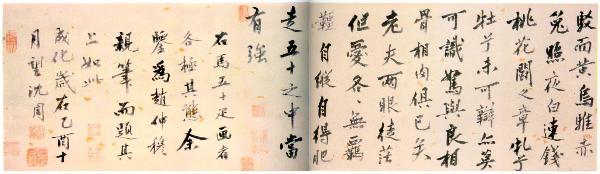 駁而黃烏騅赤
兔照夜白連錢
桃花闕之章牝乎
牡乎未可辯亦莫
可識駑與良相
骨相肉俱已矣
老夫兩眼徒茫
但愛各各無羈
韁自縱自得肥
走五十之中當
有強
右馬五十疋畫者
各極其態余
鑒為趙仲穆
親筆而題其
上如此
成化歲在乙酉十
月望沈周